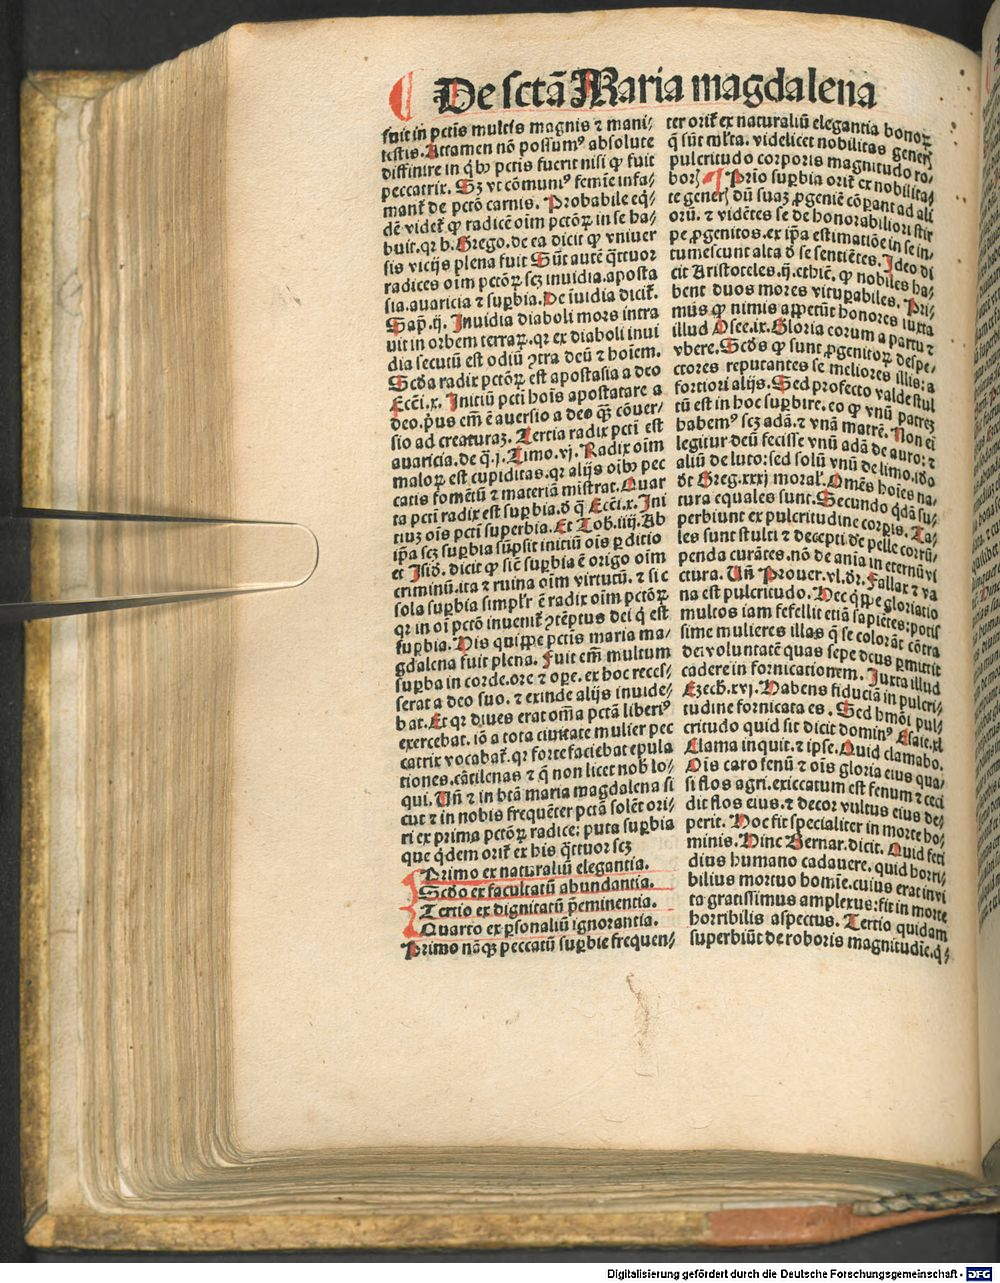 De sctā Maria magdalena
fuit in pctis multis magnis ⁊ mani⸗
festis. Attamen nō possumꝰ absolute
diffinire in qͥbꝫ pctis fuerit nisi ꝙ fuit
peccatrix. Sꝫ vt cōmuniꝰ femīe infa⸗
mant̄ de pctō carnis. Probabile eqͥ⸗
dē videt̄ ꝙ radicē oīm pctōꝝ in se ha⸗
buit. qꝛ b. Grego. de ea dicit ꝙ vniuer
sis vicijs plena fuit Sūt autē qͣttuor
radices oīm pctōꝝ scꝫ inuidia. aposta
sia. auaricia ⁊ suꝑbia. De īuidia dicit̄.
Sap̄. ij. Inuidia diaboli mors intra
uit in orbem terraꝝ. qꝛ ex diaboli inui
dia secutū est odiū ꝯtra deū ⁊ hoīem.
Scd̄a radix pctōꝝ est apostasia a deo
Ecc̄i. x. Initiū pcti hoīs apostatare a
deo. pͥus em̄ ē auersio a deo qͣꝫ cōuer⸗
sio ad creaturaꝫ. Tertia radix pcti est
auaricia. de q̄. j. Timo. vj. Radix oīm
maloꝝ est cupiditas. qꝛ alijs oībꝰ pec
catis fomētū ⁊ materiā mīstrat. Quar
ta pcti radix est suꝑbia. d̄ q̄ Ecc̄i. x. Ini
tiuꝫ oīs pcti superbia. Et Tob. iiij. Ab
ip̄a scꝫ suꝑbia sūpsit initiū oīs ꝑditio
et Isid̄. dicit ꝙ sic̄ suꝑbia ē origo oīm
criminū. ita ⁊ ruina oīm virtutū. ⁊ sic
sola suꝑbia simplr̄ ē radix oīm pctōꝝ
qꝛ in oī pctō inuenit̄ ꝯtēptus dei qͥ est
suꝑbia. His quippe pctis maria ma⸗
gdalena fuit plena. Fuit em̄ multum
suꝑba in corde. ore ⁊ oꝑe. ex hoc recess⸗
serat a deo suo. ⁊ exinde alijs inuide⸗
bat. Et qꝛ diues erat om̄ia pctā liberiꝰ
exercebat. iō a tota ciuitate mulier pec
catrix vocabat̄. qꝛ forte faciebat epula
tiones. cātilenas ⁊ q̄ non licet nob̄ lo⸗
qui. Un̄ ⁊ in btā maria magdalena si
cut ⁊ in nobis frequēter pctā solēt ori⸗
ri ex prima pctōꝝ radice: puta suꝑbia
que qͥdem orit̄ ex his qͣttuor scꝫ
Primo ex naturaliū elegantia.
Scd̄o ex facultatū abundantia.
Tertio ex dignitatū p̄eminentia.
Quarto ex ꝑsonaliū ignorantia.
Primo nāqꝫ peccatū suꝑbie frequen⸗
ter orit̄ ex naturaliū elegantia bonoꝝ
q̄ sūt ml̄ta. videlicet nobilitas generꝭ
pulcritudo corporis magnitudo ro⸗
borꝭ Prīo suꝑbia orit̄ ex nobilita⸗
te generꝭ dū suaꝫ ꝓgeniē cōꝑant ad ali
orū. ⁊ vidētes se de honorabiliori stir
pe ꝓgenitos. ex ip̄a estimatiōe in se in⸗
tumescunt alta d̄ se sentiētes. Ideo di
cit Aristoteles. ij. ethic̄. ꝙ nobiles ha⸗
bent duos mores vituꝑabiles. Pri⸗
mus ꝙ nimis appetūt honores iuxta
illud Osee. ix. Gloria eorum a partu ⁊
vbere. Scd̄s ꝙ sunt ꝓgenitoꝝ despe⸗
ctores reputantes se meliores illis: a
fortiori alijs. Sed profecto valde stul
tū est in hoc suꝑbire. eo ꝙ vnū patreꝫ
habemꝰ scꝫ adā. ⁊ vnā matrē. Non ei
legitur deū fecisse vnū adā de auro: ⁊
aliū de luto: sed solū vnū de limo. iōo
d̄t Greg. xxxj moral̄. Omēs hoīes na⸗
tura equales sunt. Secundo qͥdā su⸗
perbiunt ex pulcritudine corꝑis. Ta⸗
les sunt stulti ⁊ decepti. de pelle corrū⸗
penda curātes. nō de anīa in eternū vi
ctura. Un̄ Prouer. vl. dr̄. Fallax ⁊ va
na est pulcritudo. Hec qͥppe gloriatio
multos iam fefellit etiā sapiētes: potis
sime mulieres illas q̄ se colorāt cōtra
dei voluntatē quas sepe deus ꝑmittit
cadere in fornicationem. Iuxta illud
Ezech̄. xvj. Habens fiduciā in pulcri⸗
tudine fornicata es. Sed hmōi pul⸗
critudo quid sit dicit dominꝰ Esaie. xl
Clama inquit. ⁊ ipse. Quid clamabo.
Oīs caro fenū ⁊ oīs gloria eius qua⸗
si flos agri. exiccatum est fenum ⁊ ceci
dit flos eius. ⁊ decor vultus eius de⸗
perit. Hoc fit specialiter in morte ho⸗
minis. Hinc Bernar. dicit. Quid feti
dius humano cadauere. quid horri⸗
bilius mortuo homīe. cuius erat in vi
ta gratissimus amplexus: fit in morte
horribilis aspectus. Tertio quidam
superbiūt de roboris magnitudīe. qͥ⸗
Digitalisierung gefördert durch die Deutsche Forschungsgemeinschaft - DFG